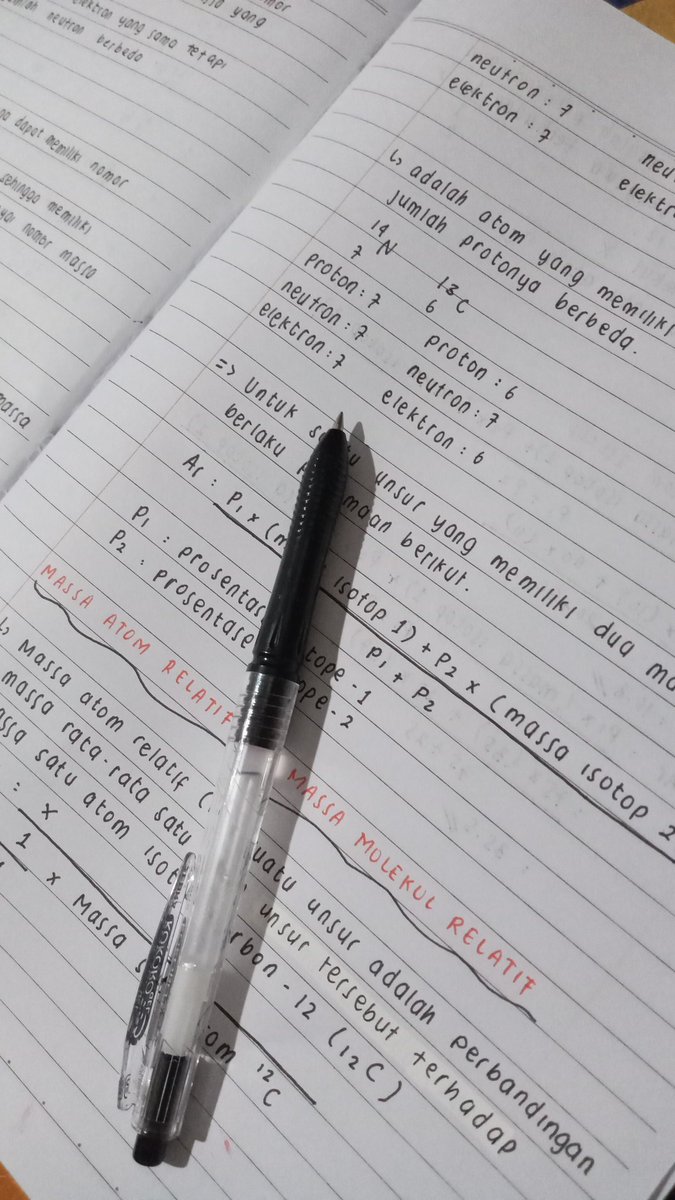 elektron yang sama tetapi
neutron berbeda
dapat memiliki nomor
sehingga memiliki
nomor massa
massa
neutron : 7
elektron : 7
↳ adalah atom yang memiliki
jumlah protonya berbeda.
14 N 7
13 C 6
proton : 7 proton : 6
neutron : 7 neutron : 7
elektron : 7 elektron : 6
=> Untuk unsur yang memiliki dua
berlaku berikut.
Ar : P1 x ( isotop 1) + P2 x (massa isotop 2
P1 + P2
P1 : prosentase -1
P2 : prosentase -2
MASSA ATOM RELATIF MASSA MOLEKUL RELATIF
↳ Massa atom relatif ( suatu unsur adalah perbandingan
massa rata-rata satu unsur tersebut terhadap
satu atom -12 (12C)
: x
1 x Massa 12 C
KOKORO